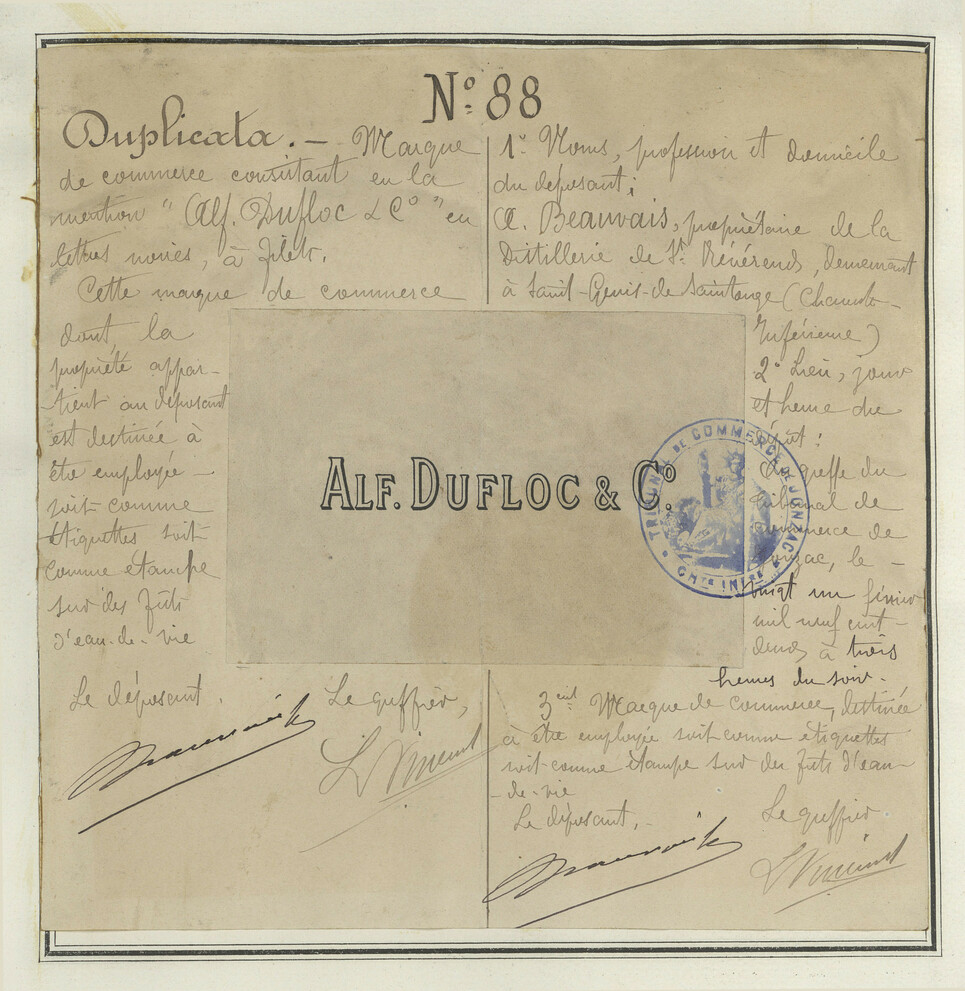 Nº 88
Duplicata. — Marque
de commerce consistant en la
mention " Alf. Dufloc & Cº " en
lettres noires, à filets.
Cette marque de commerce
dont la
propriété appar-
tient au déposant
est destinée à
être employée
soit comme
étiquettes soit
comme étampe
sur des fûts
d'eau-de-vie
Le déposant.
Le greffier,
L Vincent
1º Noms, profession et domicile
du déposant :
A. Beauvais, propriétaire de la
Distillerie de St. Révérends, demeurant
à Saint-Genis-de Saintonge (Charente-
Inférieure)
2º Lieu, jour
et heure du
dépôt :
Au greffe du
Tribunal de
commerce de
Jonzac, le -
vingt un février
mil neuf cent-
deux, à trois
heures du soir.
3ent Marque de commerce, destinée
à être employée soit comme étiquettes
soit comme étampe sur des fûts d'eau-
-de-vie
Le déposant, -
Le greffier
L Vincent
ALF. DUFLOC & Cº.
TRIBUNAL DE COMMERCE DE JONZAC
CHTE INFRE